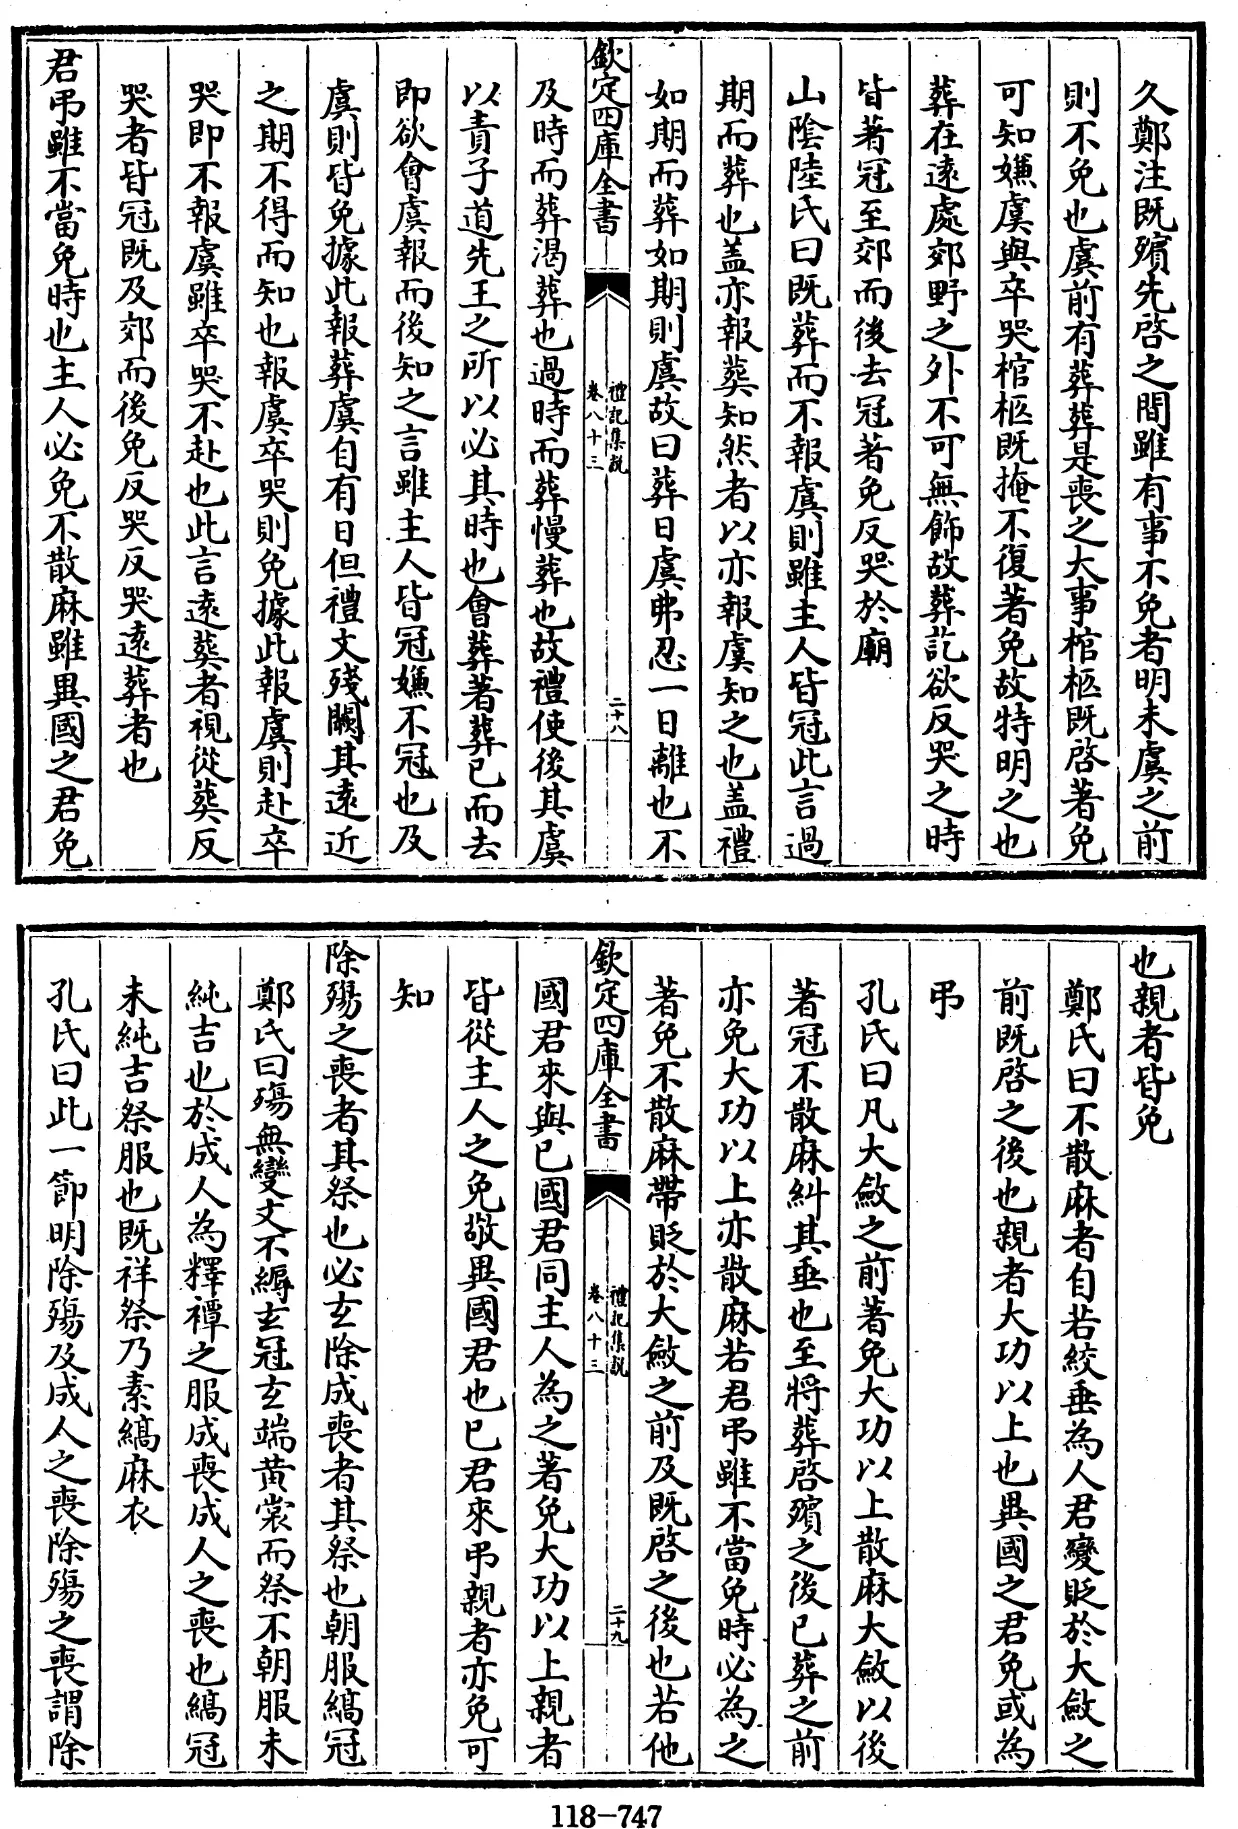 久鄭注既殯先啓之間雖有事不免者明未虞之前
則不免也虞前有葬葬是喪之大事棺柩既啓著免
可知嫌虞與卒哭棺柩既掩不復著免故特明之也
葬在遠處郊野之外不可無飾故葬訖欲反哭之時
皆著冠至郊而後去冠著免反哭於廟
山陰陸氏曰既葬而不報虞則雖主人皆冠此言過
期而葬也盖亦報葬知然者以亦報虞知之也盖禮
如期而葬如期則虞故曰葬日虞弗忍一日離也不
欽定四庫全書
禮記集說
卷八十三
二十八
及時而葬渴葬也過時而葬慢葬也故禮使後其虞
以責子道先王之所以必其時也會葬著葬已而去
即欲會虞報而後知之言雖主人皆冠嫌不冠也及
虞則皆免據此報葬虞自有日但禮文殘闕其遠近
之期不得而知也報虞卒哭則免據此報虞則赴卒
哭即不報虞雖卒哭不赴也此言遠葬者視從葬反
哭者皆冠既及郊而後免反哭反哭遠葬者也
君弔雖不當免時也主人必免不散麻雖異國之君免
也親者皆免
鄭氏曰不散麻者自若絞垂為人君變貶於大斂之
前既啓之後也親者大功以上也異國之君免或為
弔
孔氏曰凡大斂之前著免大功以上散麻大斂以後
著冠不散麻糾其垂也至將葬啓殯之後已葬之前
亦免大功以上亦散麻若君弔雖不當免時必為之
著免不散麻帶貶於大斂之前及既啓之後也若他
欽定四庫全書
禮記集說
卷八十三
二十九
國君來與己國君同主人為之著免大功以上親者
皆從主人之免敬異國君也已君來弔親者亦免可
知
除殤之喪者其祭也必玄除成喪者其祭也朝服縞冠
鄭氏曰殤無變文不縟玄冠玄端黄裳而祭不朝服未
純吉也於成人為釋禫之服成喪成人之喪也縞冠
未純吉祭服也既祥祭乃素縞麻衣
孔氏曰此一節明除殤及成人之喪除殤之喪謂除
118-747